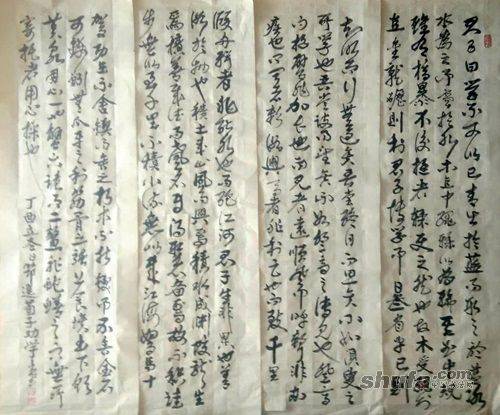 君子曰學不可以已青出於藍而取之於藍冰
水為之而寒於水木直中繩輮以為輪其曲中規
雖有槁暴不復挺者輮使之然也故木受繩則
直金就礪則利君子博學而日參省乎己則
知明而行無過矣吾嘗終日而思矣不如須臾之
所學也吾嘗跂而望矣不如登高之博見也登高
而招臂非加長也而見者遠順風而呼聲非加
疾也而聞者彰假輿馬者非利足也而致千里
假舟楫者非能水也而絕江河君子生非異也善
假於物也積土成山風雨興焉積水成淵蛟龍生
焉積善成德而神明自得聖心備焉故不積跬
步無以至千里不積小流無以成江海駑馬十
駕功在不舍鍥而舍之朽木不折鍥而不舍金石
可鏤蚓無爪牙之利筋骨之強上食埃土下飲
黃泉用心一也蟹六跪而二螯非蛇蟺之穴無所
寄托者用心躁也
丁酉立冬日節選荀子勸學
shufa.com